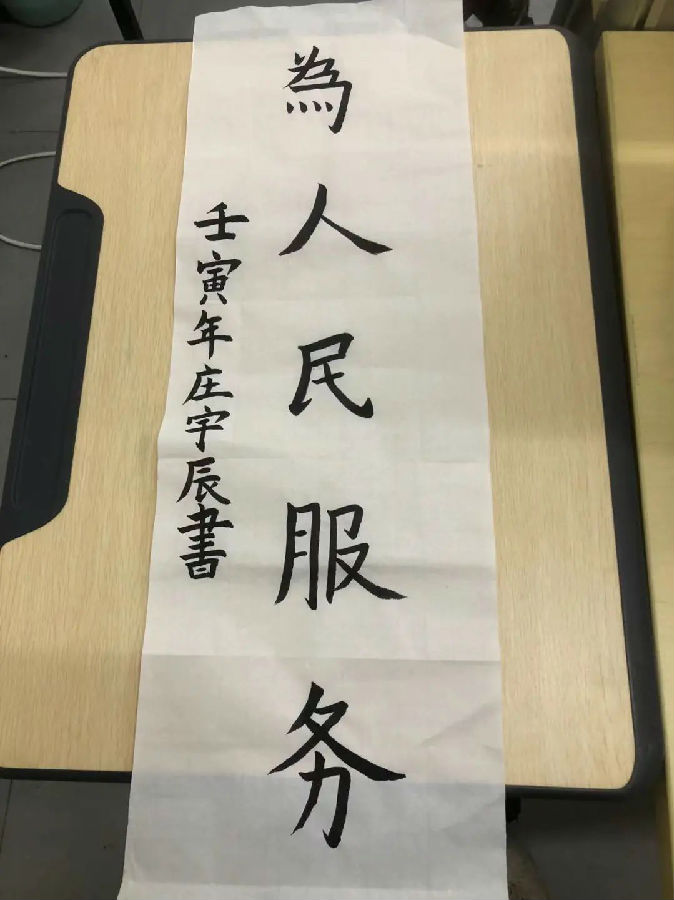 為人民服务
壬寅年庄宇辰書